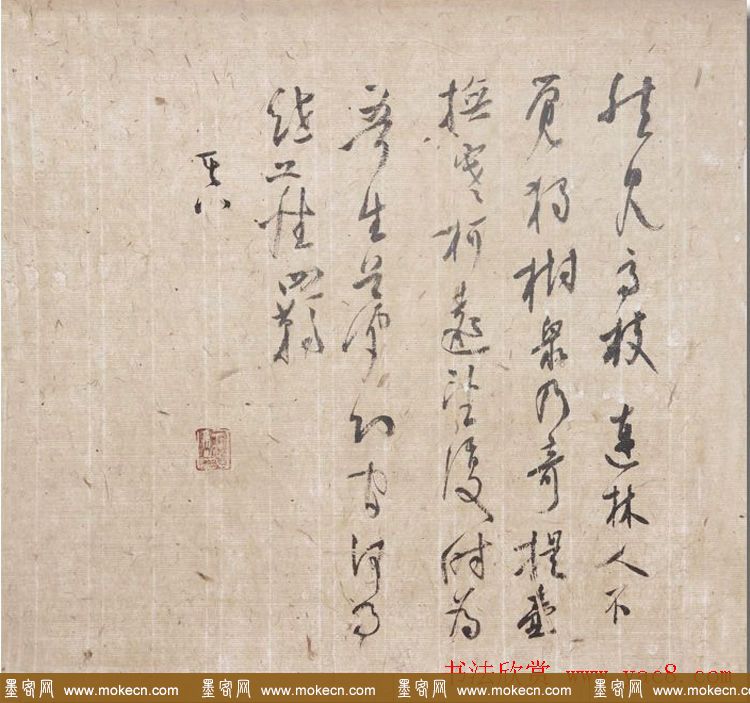 然見高枝連林人不
覺獨樹衆乃奇提壺
撫寒柯遠望復時為
吾生夢幻間何事
紲塵羈
其八
书法欣赏 www.yac8.com
墨客网 www.mokecn.com 墨客网 www.mokecn.com 墨客网 www.mokecn.com 墨客网 www.mokecn.com